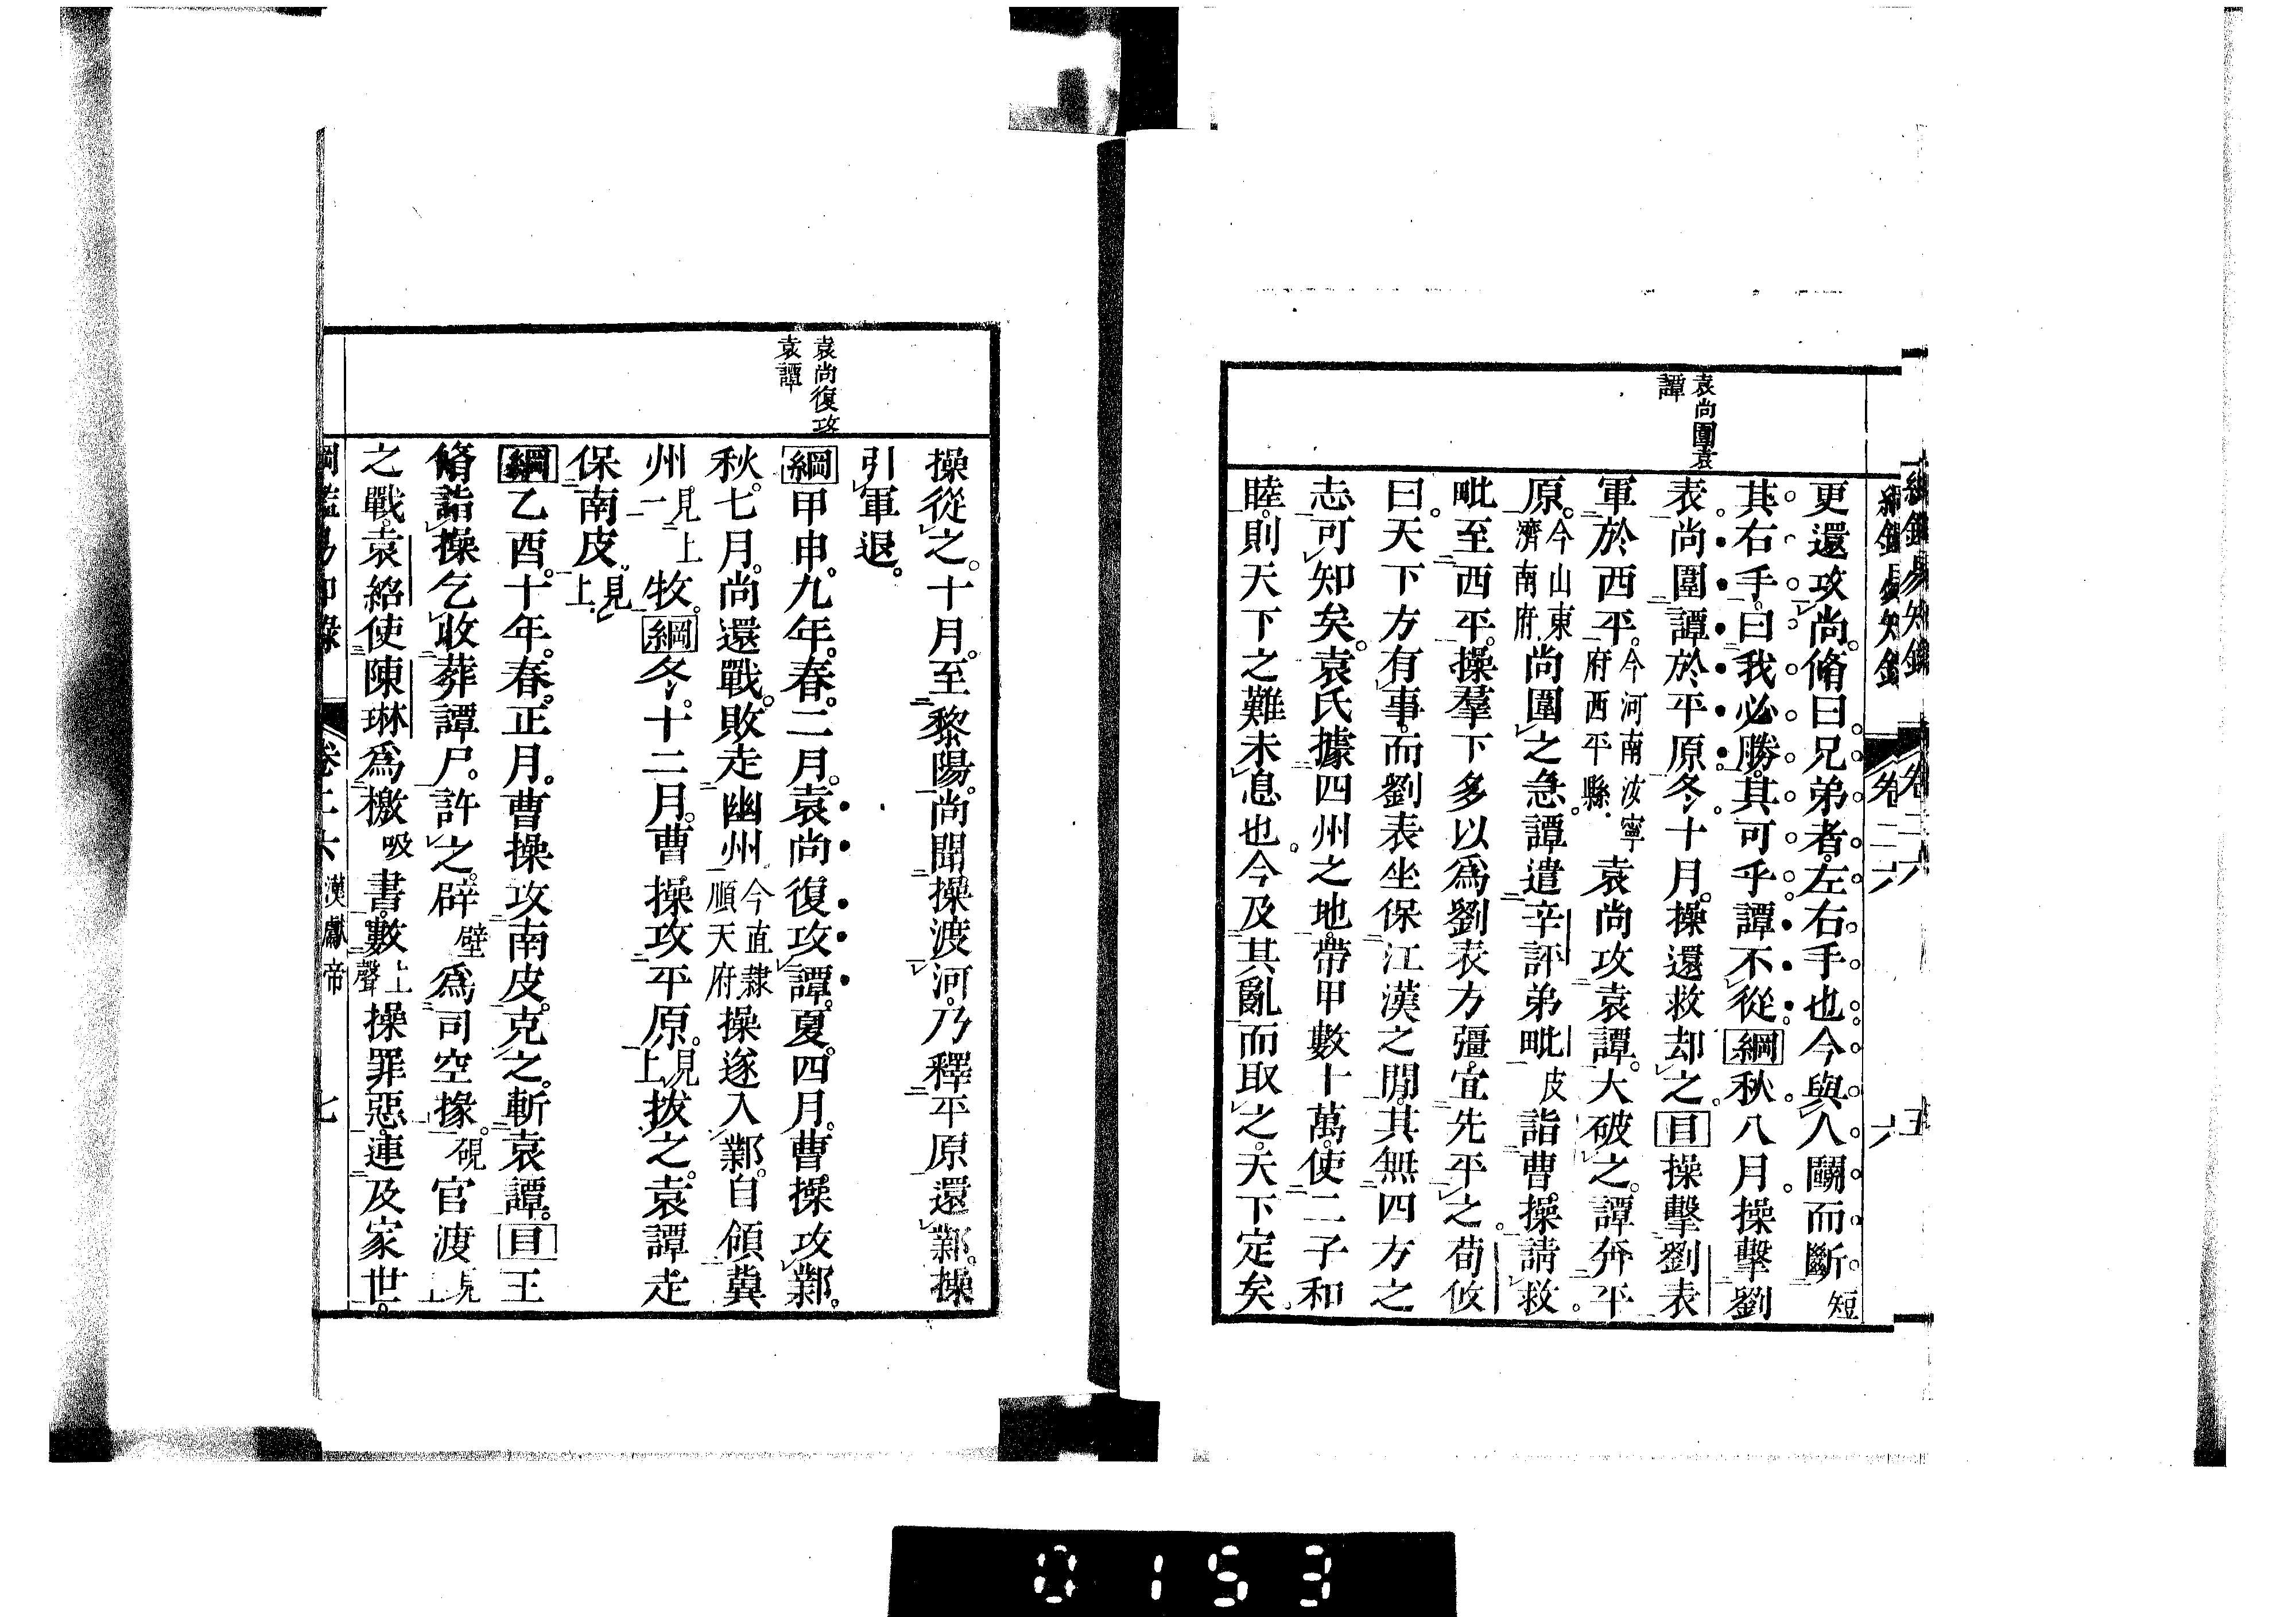 綱鑑易知錄 卷二六 六
袁尚圍袁
譚
更還攻尚。脩曰。兄弟者。左右手也。今與人鬭而斷短
其右手。曰我必勝。其可乎。譚不從。綱秋八月。操擊劉
表。尚圍譚於平原。冬十月。操還救却之。目操擊劉表
軍於西平。今河南汝寧府西平縣。袁尚攻袁譚。大破之。譚奔平
原。今山東濟南府。尚圍之急。譚遣辛評弟毗皮詣曹操請救。
毗至西平。操羣下多以爲劉表方彊。宜先平之。荀攸
曰。天下方有事。而劉表坐保江漢之閒。其無四方之
志可知矣。袁氏據四州之地。帶甲數十萬。使二子和
睦。則天下之難未息也。今及其亂而取之。天下定矣。
操從之。十月。至黎陽。尚聞操渡河。乃釋平原還鄴。操
引軍退。
袁尚復攻
袁譚
綱甲申。九年。春。二月。袁尚復攻譚。夏。四月。曹操攻鄴。
秋。七月。尚還戰。敗走幽州。今直隸順天府。操遂入鄴。自領冀
州見上一牧。綱冬。十二月。曹操攻平原。見上拔之。袁譚走
保南皮。見上
綱乙酉。十年。春。正月。曹操攻南皮。克之。斬袁譚。目王
脩詣操乞收葬譚尸。許之。辟壁爲司空掾。硯官渡見上
之戰。袁紹使陳琳爲檄吸書。數上聲操罪惡。連及家世。
綱鑑易知錄 卷二六 漢獻帝 七